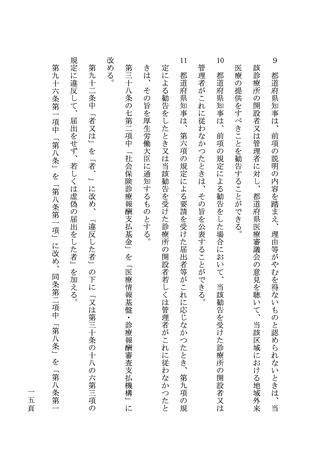 ９　都道府県知事は、前項の説明の内容を踏まえ、理由等がやむを得ないものと認められないときは、当
該診療所の開設者又は管理者に対し、都道府県医療審議会の意見を聴いて、当該区域における地域外来
医療の提供をすべきことを勧告することができる。
10　都道府県知事は、前項の規定による勧告をした場合において、当該勧告を受けた診療所の開設者又は
管理者がこれに従わなかつたときは、その旨を公表することができる。
11　都道府県知事は、第六項の規定による要請を受けた届出者等がこれに応じなかつたとき、第九項の規
定による勧告をしたとき又は当該勧告を受けた診療所の開設者若しくは管理者がこれに従わなかつたと
きは、その旨を厚生労働大臣に通知するものとする。
第三十八条の七第二項中「社会保険診療報酬支払基金」を「医療情報基盤・診療報酬審査支払機構」に
改める。
第九十二条中「者又は」を「者、」に改め、「違反した者」の下に「又は第三十条の十八の六第三項の
規定に違反して、届出をせず、若しくは虚偽の届出をした者」を加える。
第九十六条第一項中「第八条」を「第八条第一項」に改め、同条第二項中「第八条」を「第八条第一
一五頁